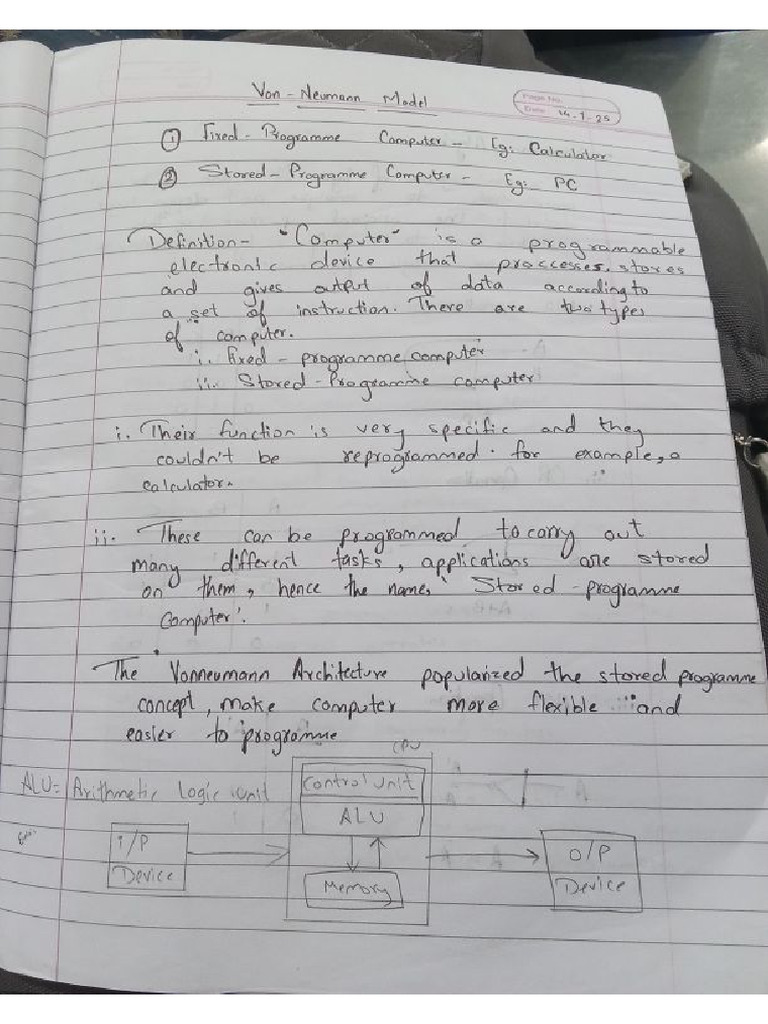 Von-Neumann Model
Page No.
Date 14.1.25
① Fixed-Programme Computer - Eg: Calculator
② Stored-Programme Computer - Eg:- PC
Definition- "Computer" is a programmable
electronic device that proccesses, stores
and gives output of data according to
a set of instruction. There are two types
of computer.
i. fixed-programme computer
ii. Stored-Programme computer
i. Their function is very specific and they
couldn't be reprogrammed. for example, a
calculator.
ii. These can be programmed to carry out
many different tasks, applications are stored
on them, hence the name, 'Stored-programme
Computer'.
The Vonneumann Architecture popularized the stored programme
concept, make computer more flexible and
easier to programme
CPU
ALU= Arithmetic Logic Unit
Control Unit
ALU
I/P
Device
Memory
O/P
Device